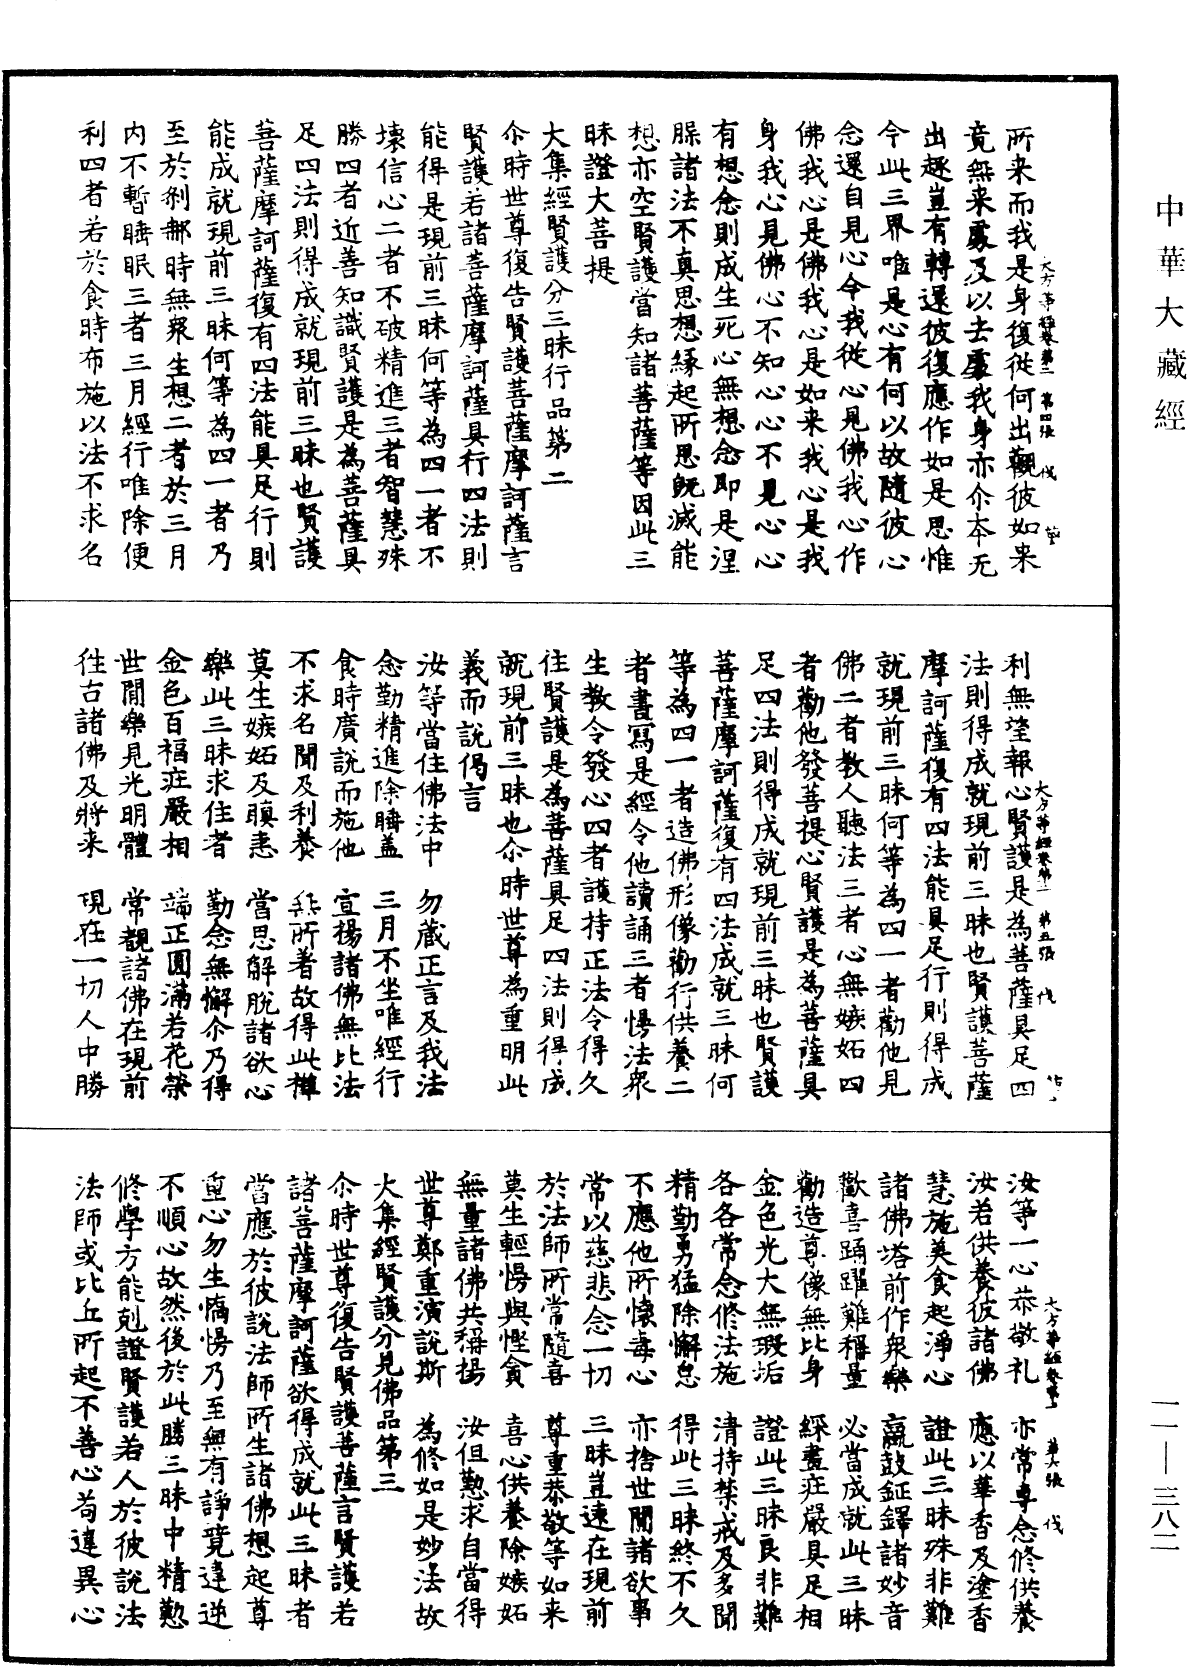 中華大藏經
一一—三八二
所来而我是身復從何出觀彼如来
竟無来處及以去處我身亦尒本无
出趣豈有轉還彼復應作如是思惟
今此三界唯是心有何以故隨彼心
念還自見心今我從心見佛我心作
佛我心是佛我心是如来我心是我
身我心見佛心不知心心不見心心
有想念則成生死心無想念即是涅
槃諸法不真思想緣起所思既滅能
想亦空賢護當知諸菩薩等因此三
昧證大菩提
大集經賢護分三昧行品第二
尒時世尊復告賢護菩薩摩訶薩言
賢護若諸菩薩摩訶薩具行四法則
能得是現前三昧何等為四一者不
壞信心二者不破精進三者智慧殊
勝四者近善知識賢護是為菩薩具
足四法則得成就現前三昧也賢護
菩薩摩訶薩復有四法能具足行則
能成就現前三昧何等為四一者乃
至於剎那時無衆生想二者於三月
內不暫睡眠三者三月經行唯除便
利四者若於食時布施以法不求名
大方等經卷第二　第四張　伐
利無望報心賢護是為菩薩具足四
法則得成就現前三昧也賢護菩薩
摩訶薩復有四法能具足行則得成
就現前三昧何等為四一者勸他見
佛二者教人聽法三者心無嫉妬四
者勸他發菩提心賢護是為菩薩具
足四法則得成就現前三昧也賢護
菩薩摩訶薩復有四法成就三昧何
等為四一者造佛形像勸行供養二
者書寫是經令他讀誦三者慢法衆
生教令發心四者護持正法令得久
住賢護是為菩薩具足四法則得成
就現前三昧也尒時世尊為重明此
義而說偈言
汝等當住佛法中　勿藏正言及我法
念勤精進除睡蓋　三月不坐唯經行
食時廣說而施他　宣揚諸佛無比法
不求名聞及利養　無所著故得此禪
莫生嫉妬及瞋恚　當思解脫諸欲心
樂此三昧求住者　勤念無懈尒乃得
金色百福莊嚴相　端正圓滿若花榮
世間樂見光明體　常覩諸佛在現前
往古諸佛及將来　現在一切人中勝
大方等經卷第二　第五張　伐
汝等一心恭敬礼　亦常專念修供養
汝若供養彼諸佛　應以華香及塗香
慧施美食起淨心　證此三昧殊非難
諸佛塔前作衆樂　蠃鼓鉦鐸諸妙音
歡喜踊躍難稱量　必當成就此三昧
勸造尊像無比身　綵畫莊嚴具足相
金色光大無瑕垢　證此三昧良非難
各各常念修法施　清持禁戒及多聞
精勤勇猛除懈怠　得此三昧終不久
不應他所懷毒心　亦捨世間諸欲事
常以慈悲念一切　三昧豈遠在現前
於法師所常隨喜　尊重恭敬等如来
莫生輕慢與慳貪　喜心供養除嫉妬
無量諸佛共稱揚　汝但懃求自當得
世尊鄭重演說斯　為修如是妙法故
大集經賢護分見佛品第三
尒時世尊復告賢護菩薩言賢護若
諸菩薩摩訶薩欲得成就此三昧者
當應於彼說法師所生諸佛想起尊
重心勿生憍慢乃至無有諍競違逆
不順心故然後於此勝三昧中精懃
修學方能剋證賢護若人於彼說法
法師或比丘所起不善心苟違異心
大方等經卷第二　第六張　伐